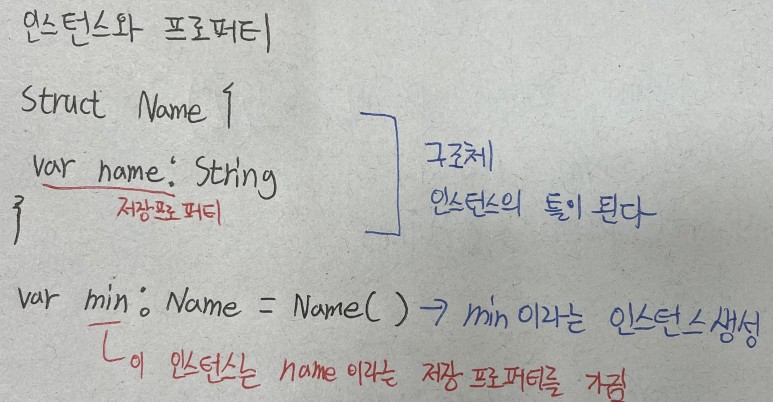 인스턴스와 프로퍼티
Struct Name {
var name: String
저장프로퍼티
}
구조체
인스턴스의 틀이 된다
var min: Name = Name() → min 이라는 인스턴스 생성
이 인스턴스는 name 이라는 저장 프로퍼티를 가짐